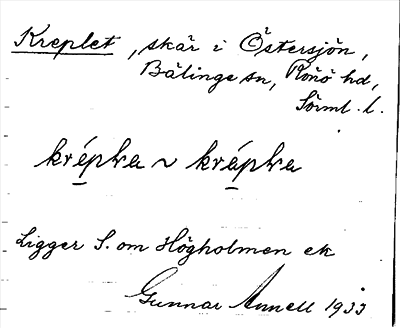 Kreplet, skär i Östersjön,
Bälinge sn, Rönö hd,
Sörml. l.
krépḷẹa ~ krápḷẹa
Ligger S. om Högholmen ek
Gunnar Annell 1933